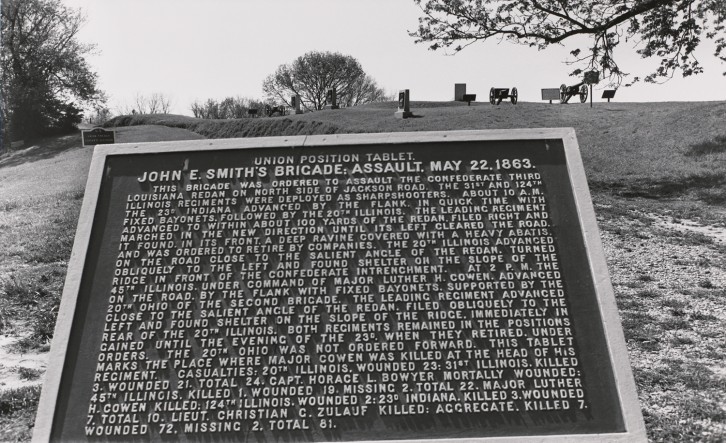 UNION POSITION TABLET.
JOHN E. SMITH'S BRIGADE; ASSAULT, MAY 22, 1863.
THIS BRIGADE WAS ORDERED TO ASSAULT THE CONFEDERATE THIRD
LOUISIANA REDAN ON NORTH SIDE OF JACKSON ROAD. THE 31ST AND 124TH
ILLINOIS REGIMENTS WERE DEPLOYED AS SHARPSHOOTERS. ABOUT 10 A.M.
THE 23D INDIANA ADVANCED BY THE FLANK, IN QUICK TIME WITH
FIXED BAYONETS, FOLLOWED BY THE 20TH ILLINOIS. THE LEADING REGIMENT
ADVANCED TO WITHIN ABOUT 100 YARDS OF THE REDAN, FILED RIGHT AND
MARCHED IN THE NEW DIRECTION UNTIL ITS LEFT CLEARED THE ROAD.
IT FOUND, IN ITS FRONT, A DEEP RAVINE COVERED WITH A HEAVY ABATIS,
AND WAS ORDERED TO RETIRE BY COMPANIES. THE 20TH ILLINOIS ADVANCED
ON THE ROAD CLOSE TO THE SALIENT ANGLE OF THE REDAN, TURNED
OBLIQUELY TO THE LEFT AND FOUND SHELTER ON THE SLOPE OF THE
RIDGE IN FRONT OF THE CONFEDERATE INTRENCHMENT. AT 2 P.M. THE
45TH ILLINOIS, UNDER COMMAND OF MAJOR LUTHER H. COWEN, ADVANCED
ON THE ROAD, BY THE FLANK WITH FIXED BAYONETS, SUPPORTED BY THE
20TH OHIO OF THE SECOND BRIGADE. THE LEADING REGIMENT ADVANCED
CLOSE TO THE SALIENT ANGLE OF THE REDAN, FILED OBLIQUELY TO THE
LEFT AND FOUND SHELTER ON THE SLOPE OF THE RIDGE, IMMEDIATELY IN
REAR OF THE 20TH ILLINOIS. BOTH REGIMENTS REMAINED IN THE POSITIONS
GAINED UNTIL THE EVENING OF THE 23D, WHEN THEY RETIRED, UNDER
ORDERS. THE 20TH OHIO WAS NOT ORDERED FORWARD. THIS TABLET
MARKS THE PLACE WHERE MAJOR COWEN WAS KILLED AT THE HEAD OF HIS
REGIMENT. CASUALTIES: 20TH ILLINOIS, WOUNDED 23; 31ST ILLINOIS, KILLED
3, WOUNDED 21, TOTAL 24, CAPT. HORACE L. BOWYER MORTALLY WOUNDED:
45TH ILLINOIS, KILLED 1, WOUNDED 19, MISSING 2, TOTAL 22, MAJOR LUTHER
H. COWEN KILLED: 124TH ILLINOIS, WOUNDED 2: 23D INDIANA, KILLED 3, WOUNDED
7, TOTAL 10, LIEUT. CHRISTIAN G. ZULAUF KILLED: AGGREGATE, KILLED 7,
WOUNDED 72, MISSING 2, TOTAL 81.